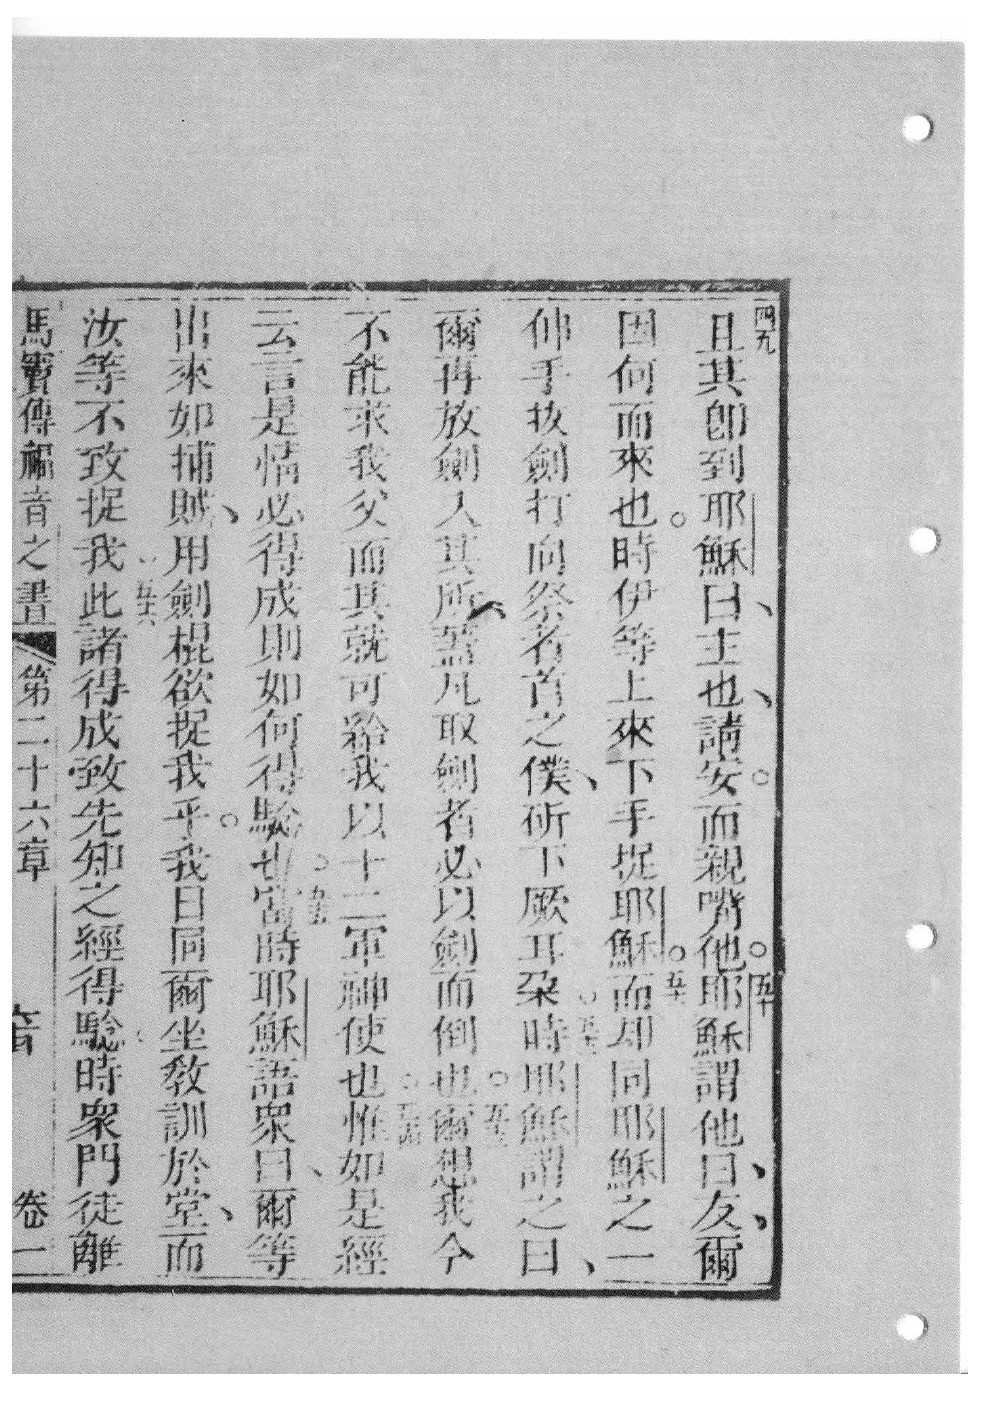 四九且其卽到耶穌曰、主也、請安。而親嘴他。五十耶穌謂他曰、友、爾
因何而來也。時伊等上來下手捉耶穌。五一而却同耶穌之一
伸手拔劍打向祭者首之僕、斫下厥耳朶。五二時耶穌謂之曰、
爾再放劍入其所、蓋凡取劍者必以劍而倒也。五三爾想我今
不能求我父而其就可給我以十二軍神使也。五四惟如是經
云言是情必得成則如何得驗也。五五當時耶穌語衆曰、爾等
出來如捕賊、用劍棍欲捉我乎。我日同爾坐敎訓於堂、而
汝等不致捉我。五六此諸得成致先知之經得驗。時衆門徒離
馬竇傳福音之書 第二十六章 卷一